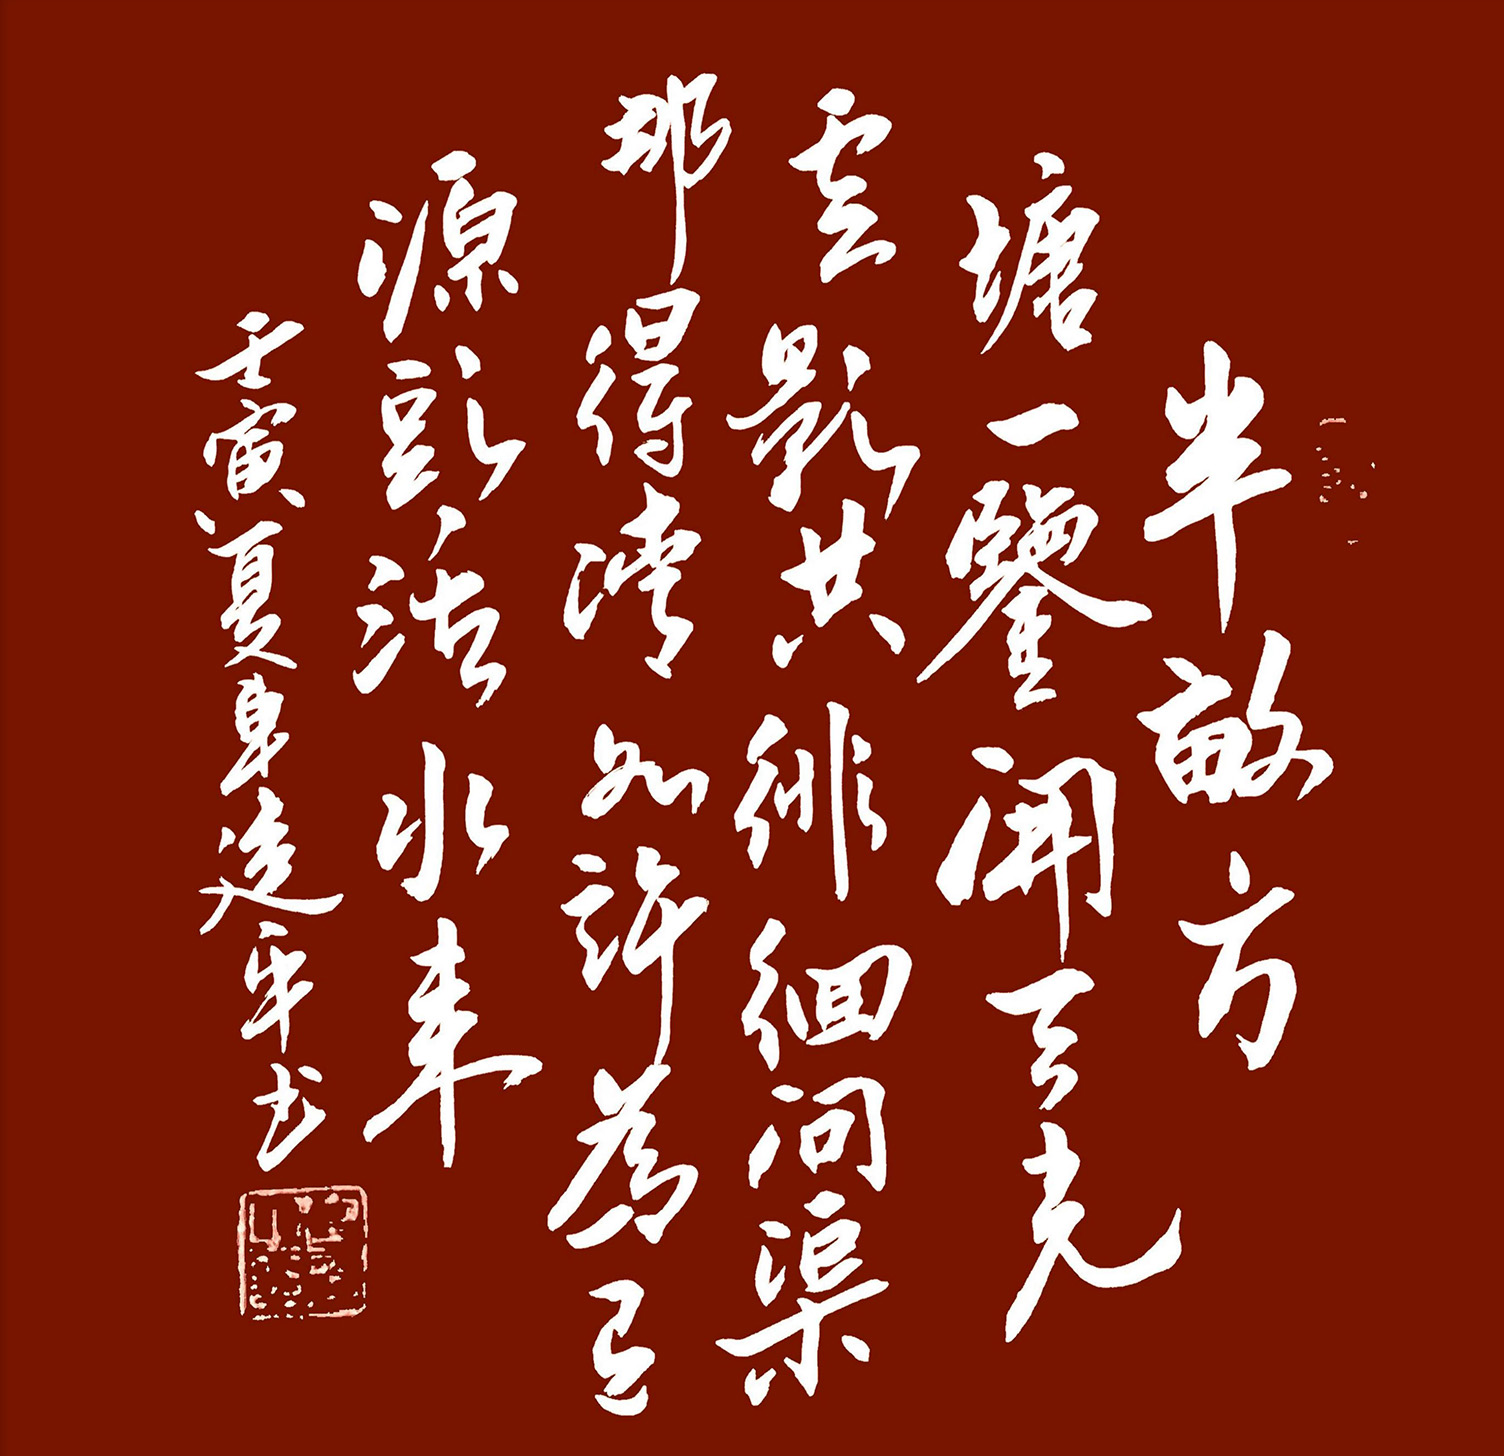 半畝方
塘一鑒開天光
雲影共徘徊問渠
那得清如許為有
源頭活水來
壬寅夏建平书